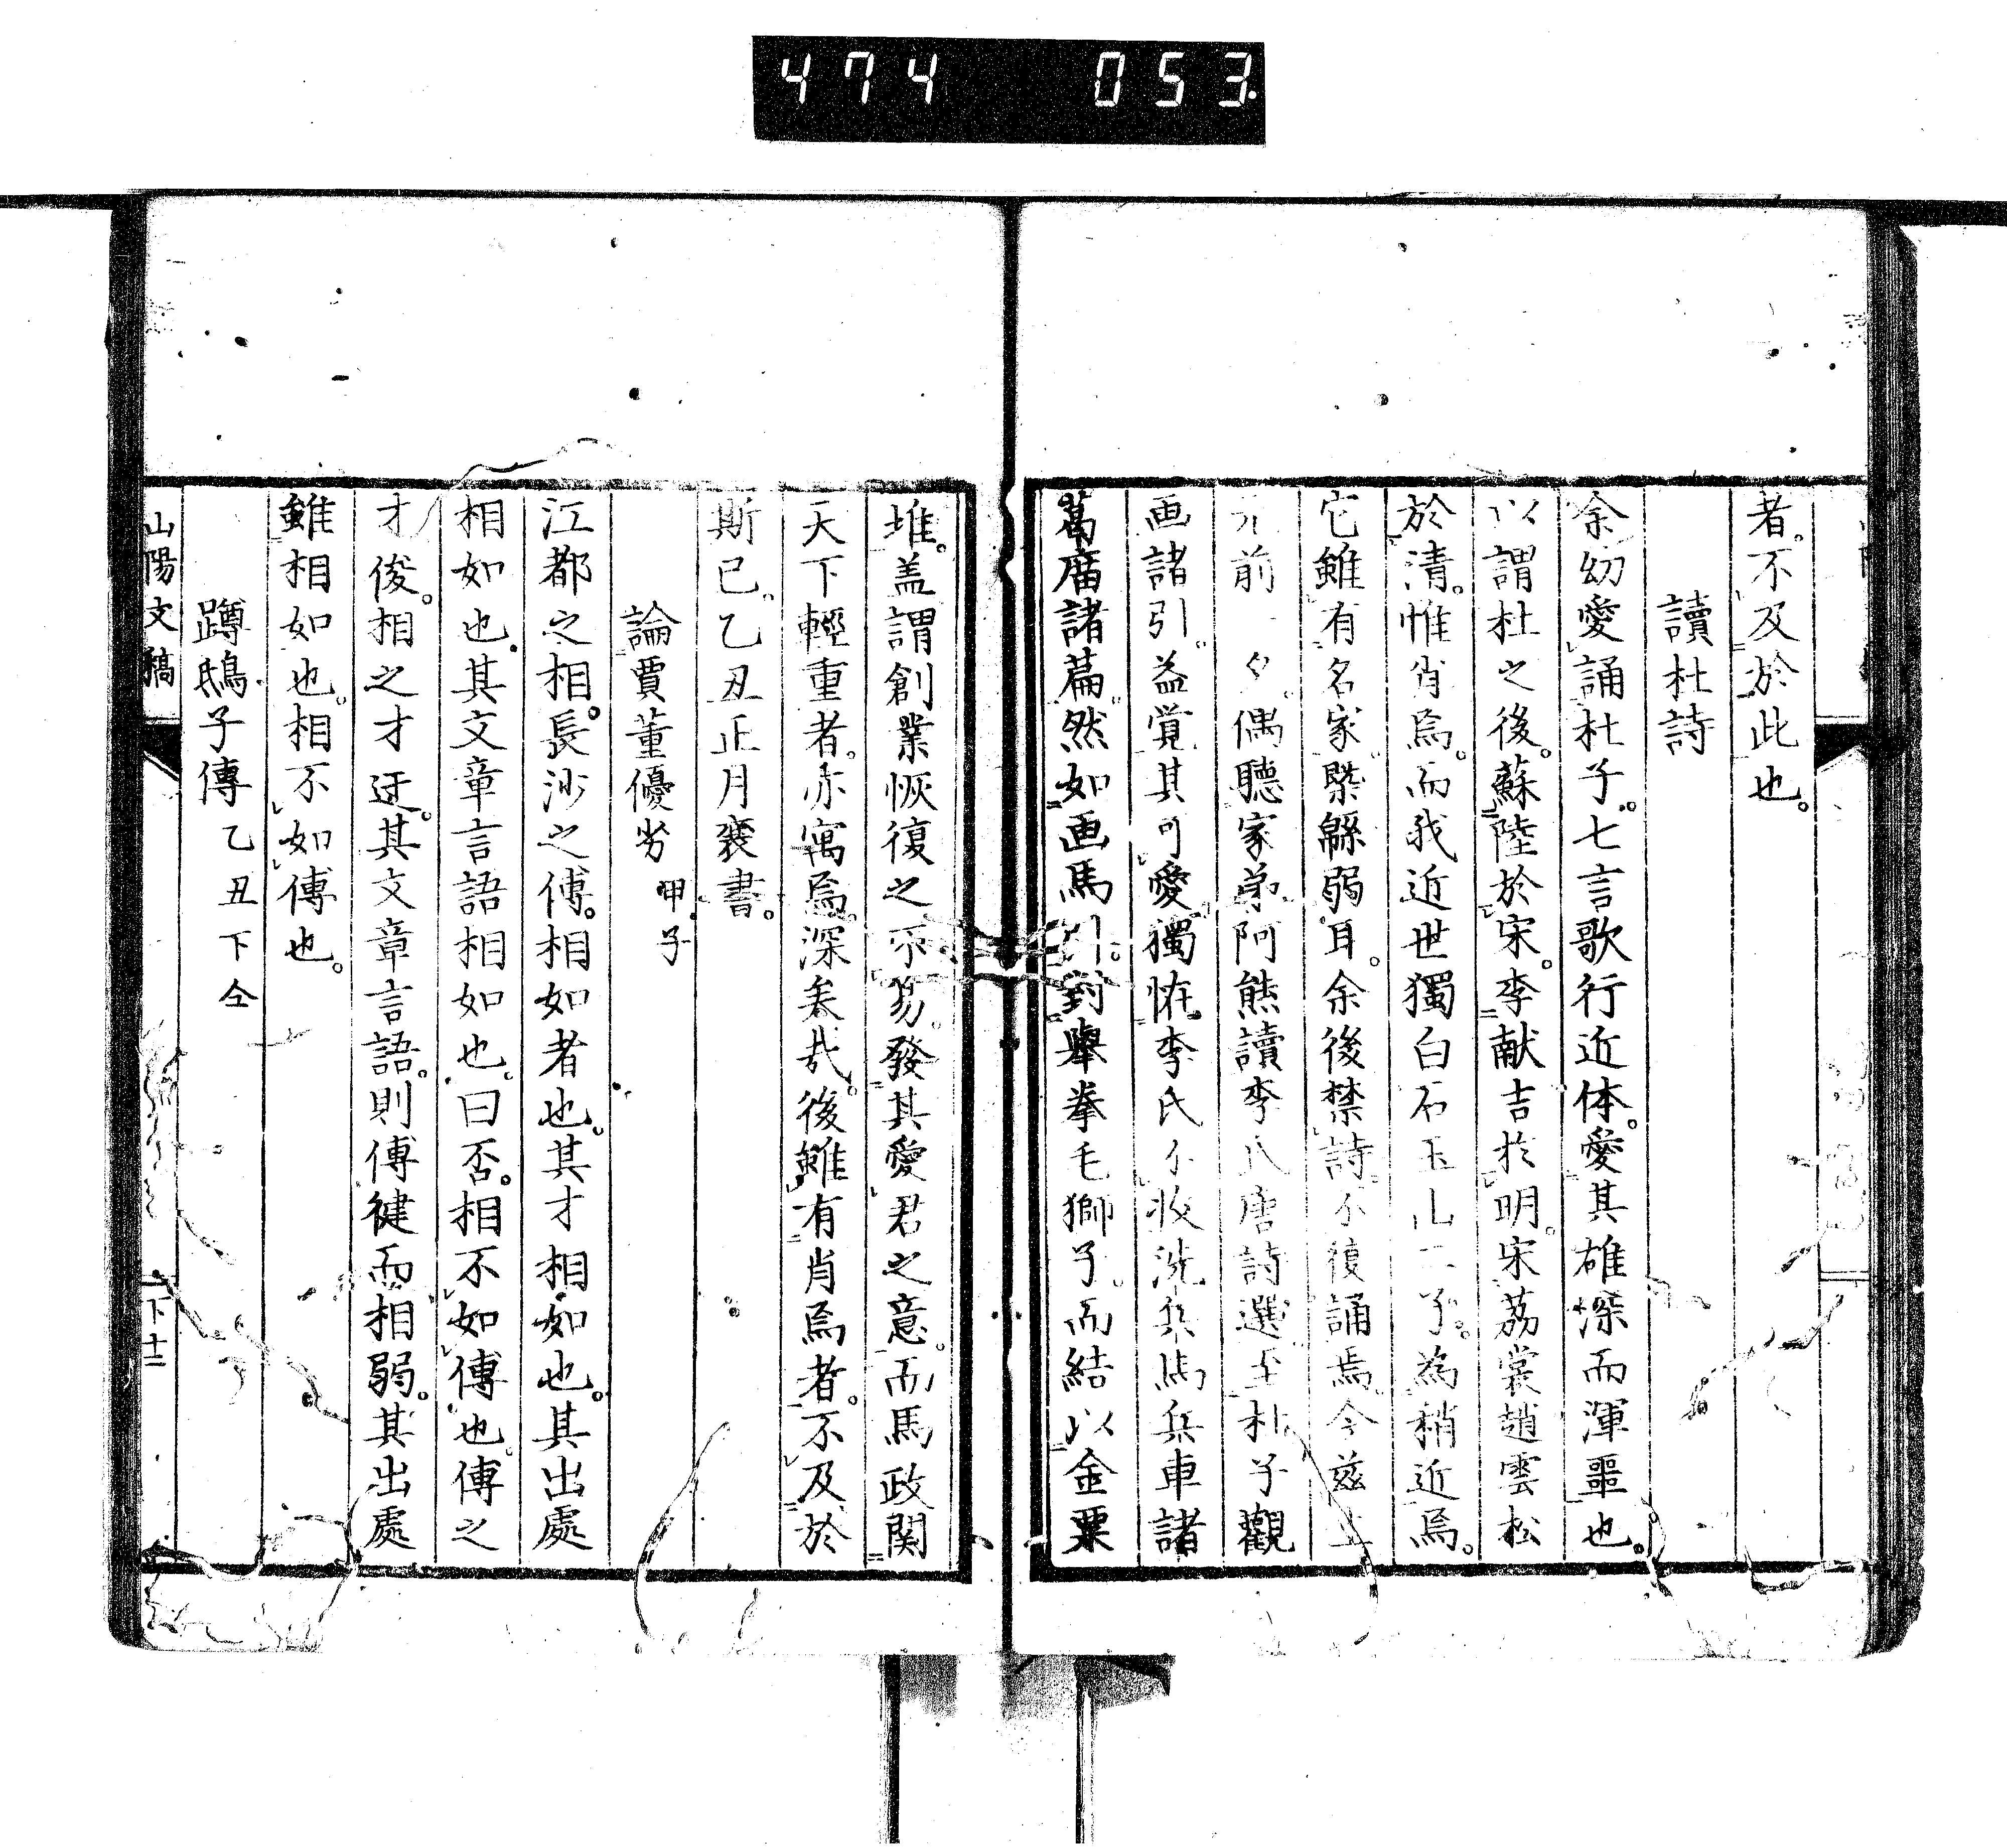 474 053
者。不及於此也。
讀杜詩
余幼愛誦杜子。七言歌行近体。愛其雄深而渾噩也。
以謂杜之後。蘇陸於宋。李献吉於明。宋荔裳趙雲松
於清。惟肖焉。而我近世獨白石玉山二子。為稍近焉。
它雖有名家。槩緜弱耳。余後禁詩。不復誦焉。今茲上
元前一夕。偶聽家弟阿熊讀李氏唐詩選。至杜子觀
画諸引。益覚其可愛。獨恠。李氏不收洗兵馬兵車諸
葛庿諸篇。然如画馬引。對舉拳毛獅子。而結以金粟
堆。盖謂創業恢復之不易。發其愛君之意。而馬政関
天下輕重者。亦寓焉。深矣哉。後雖有肖焉者。不及於
斯已。乙丑正月襄書。
論賈董優劣 甲子
江都之相。長沙之傅。相如者也。其才相如也。其出處
相如也。其文章言語相如也。曰否。相不如傅也。傅之
才俊。相之才迂。其文章言語。則傅健而相弱。其出處
雖相如也。相不如傅也。
蹲鴟子傳 乙丑下仝
山陽文稿 下 十二